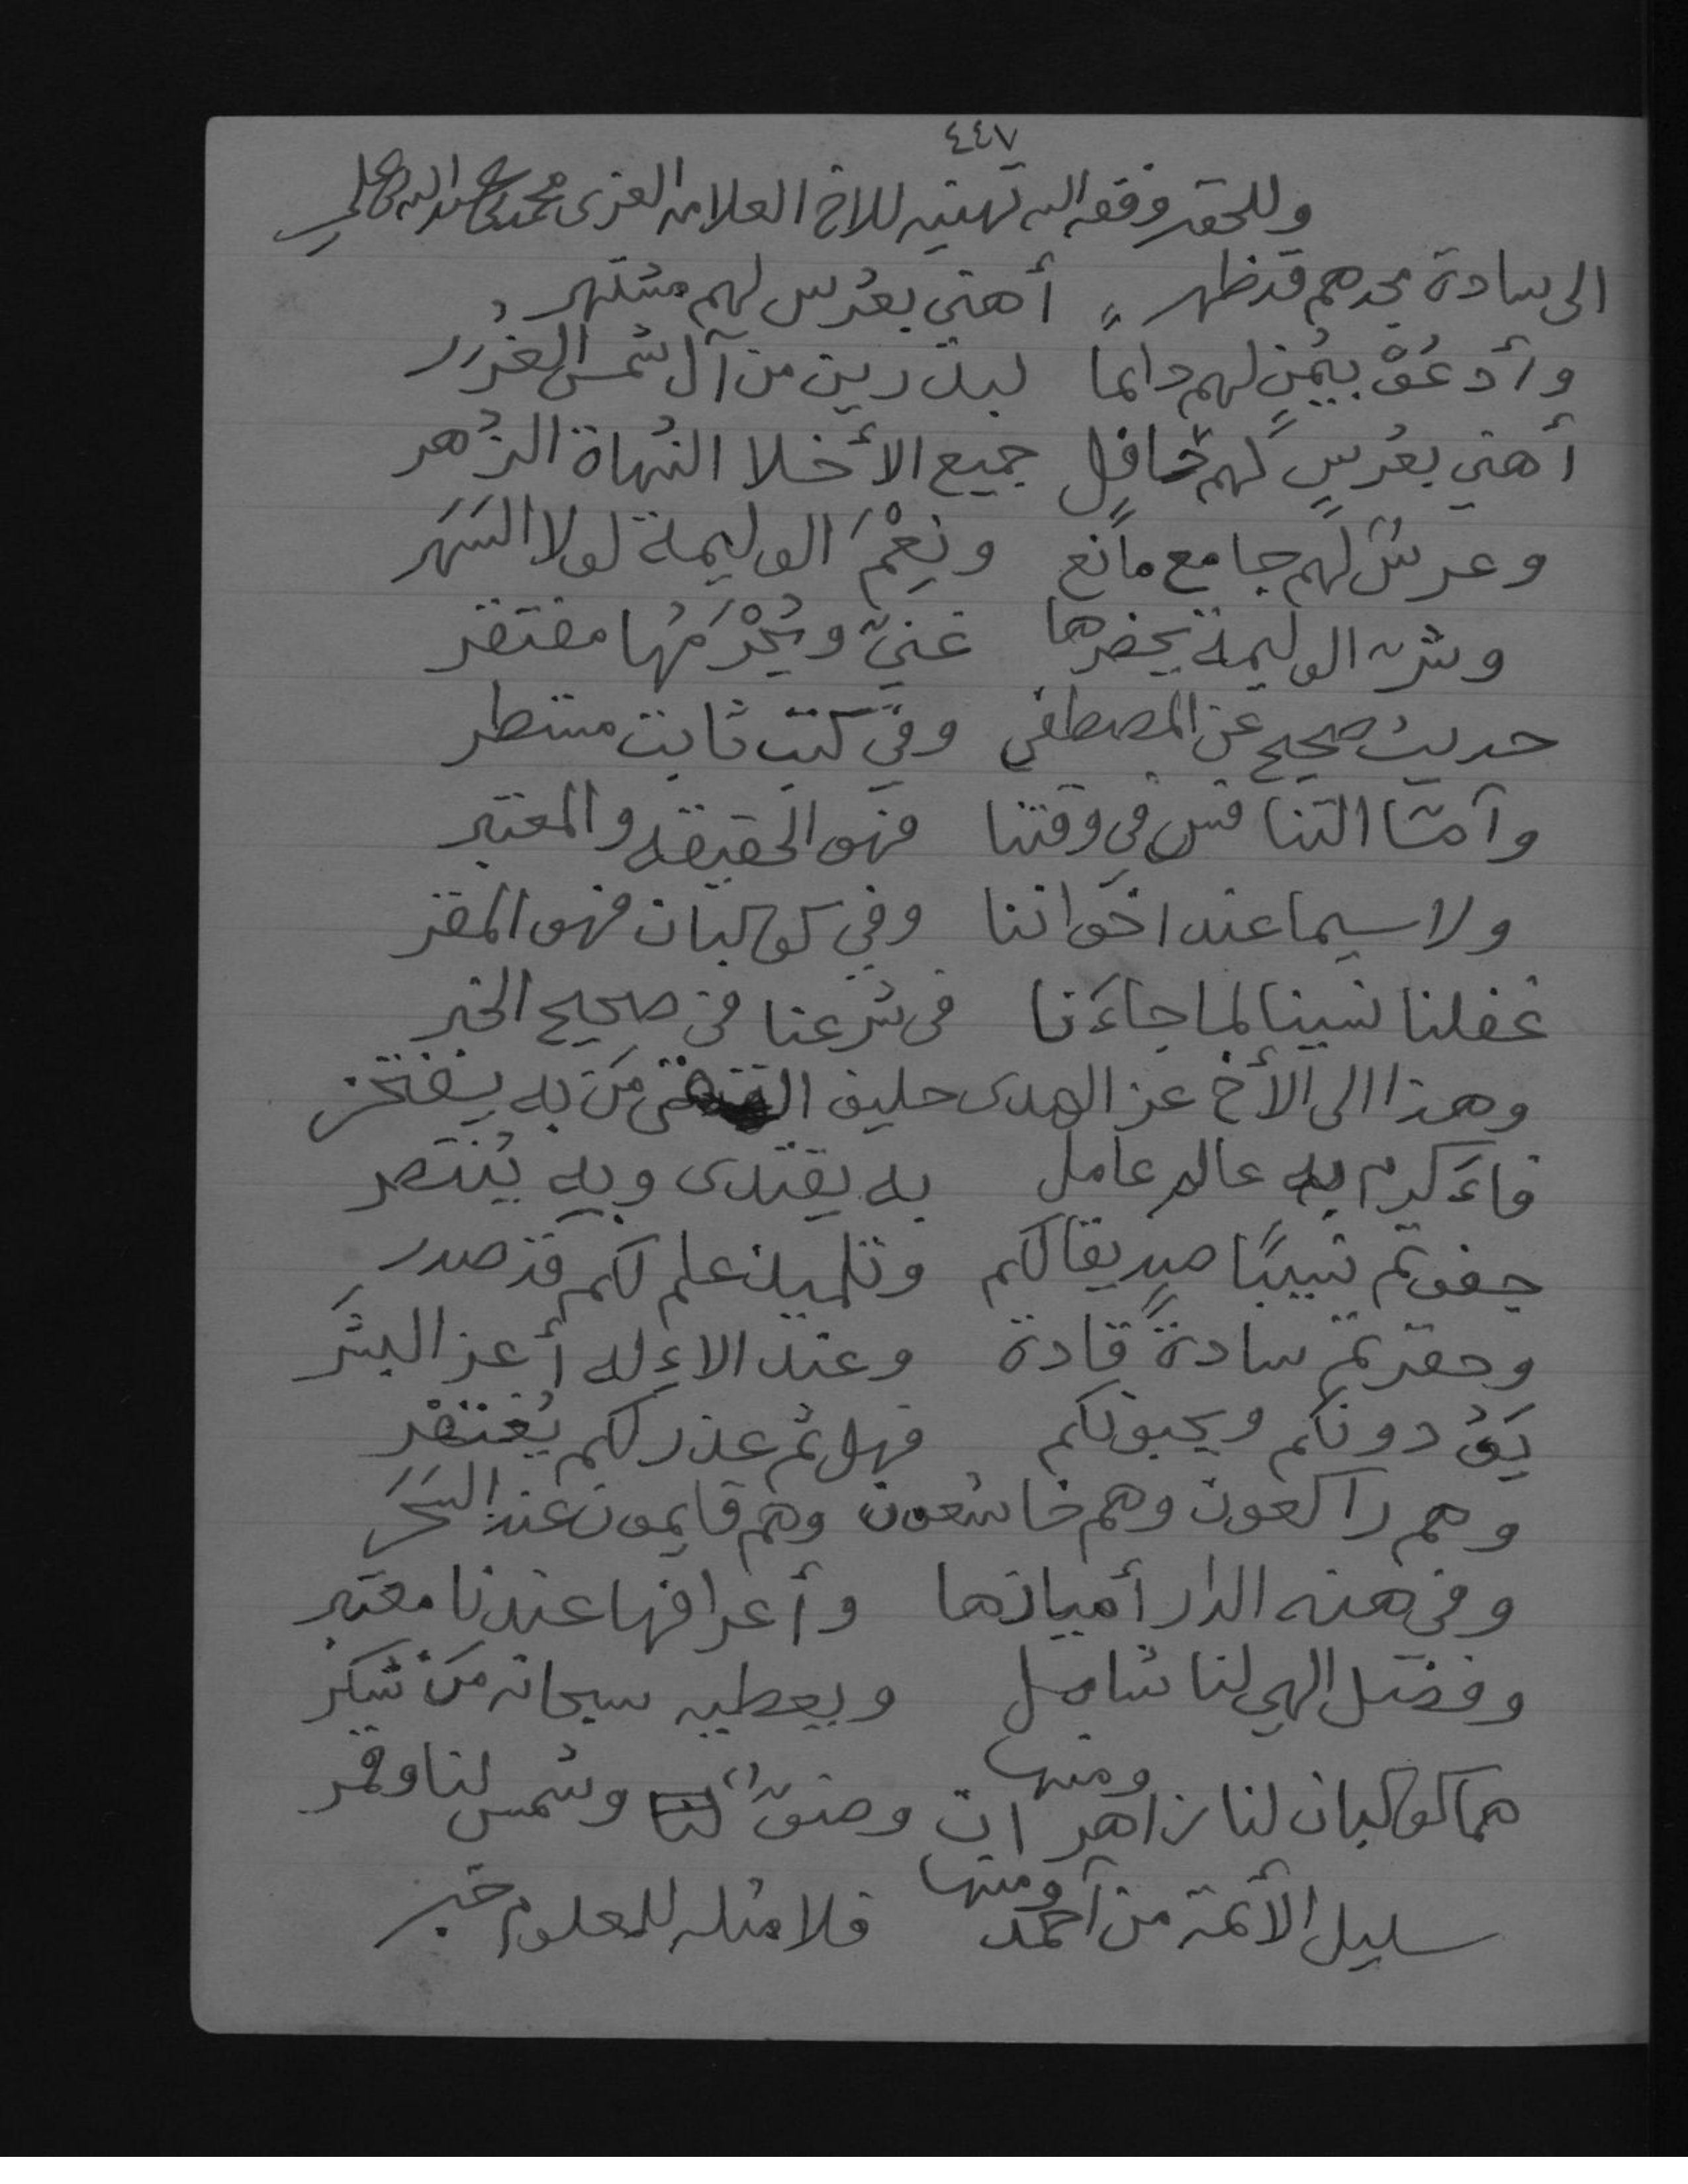 ٤٤٧
وللحقير وفقه الله تهنيه للاخ العلامه العزى محمد
الى سادة مجدهم قد ظهر أهني بعُرس لهم مشتهر
وأدعُوْ بيُمنٍ لهم دائما لبدرين من آل شمس الغُرَر
أهني بعُرسٍ لهم حافل جميع الأخلا النُهاة الزُهر
وعرسٌ لهم جامع مانع ونِعْمَ الوليمة لولا السَهَر
وشرّ الوليمة يحضرها غنيّ ويُحْرَمُها مفتقر
حديث صحيح عن المصطفى وفي كتب ثابت مستطر
وأمّا التنافس في وقتنا فهو الحقيقه والمعتبر
ولا سيما عند اخواننا وفي كوكبان فهو المقر
غفلنا نسينا لما جاءَنا في شرعنا في صحيح الخبر
وهذا الى الأخ عز الهدى حليف التقى مَن به يفتخر
فاءَكرم به عالم عامل به يقتدى وبه يُنتصر
جفوتم نسيبًا صديقا لكم وتلميذ علم لكم قد صدر
وحقرتم سادةً قادة وعند الاءِله أعز البشَر
يَوُدونكم ويحبونكم فهل ثم عذر لكم يُغتفْر
وهم راكعون وهم خاشعون وهم قايمون عند السَحَر
وفي هذه الدار أميازها وأعرافها عندنا معتبر
وفضل الهي لنا شامل ويعطيه سبحانه مَن شكر
ومنها
هما كوكبان لنا زاهران وضوءٌ لنا وشمس لنا وقمر
ومنها
سليل الأئمة من أحمد فلا مثله للعلوم خبر